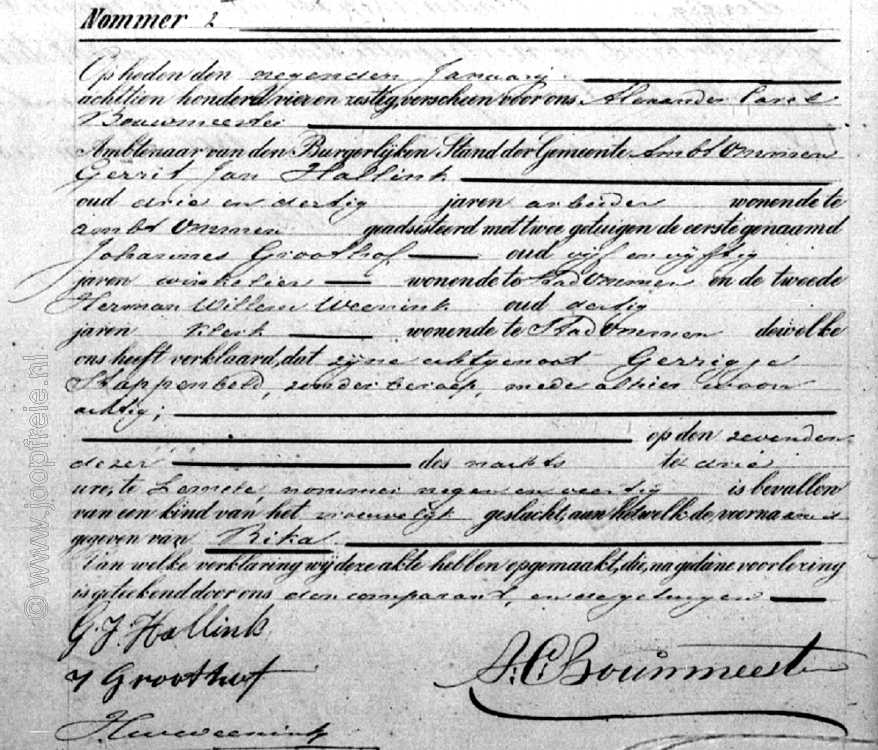 Nommer 2
Op heden den negenden Januarij
achttien honderd vier en zestig, verscheen voor ons Alexander Carel
Bouwmeester
Ambtenaar van den Burgerlijken Stand der Gemeente Ambt Ommen
Gerrit Jan Hallink
oud drie en dertig jaren arbeider wonende te
Ambt Ommen geadsisteerd met twee getuigen de eerste genaamd
Johannes Groothof oud vijf en vijftig
jaren winkelier wonende te Stad Ommen en de tweede
Herman Willem Weenink oud dertig
jaren klerk wonende te Stad Ommen dewelke
ons heeft verklaard, dat zijne echtgenoot Gerrigje
Stappenbeld, zonder beroep, mede alhier woon
achtig;
op den zevenden
dezer des nachts te drie
ure, te Lemele, nommer negen en veertig is bevallen
van een kind van het vrouwelijk geslacht, aan hetwelk de voorna
gegeven van Rika
Van welke verklaring wij deze akte hebben opgemaakt, die, na gedane voorlezing
is geteekend door ons den comparant, en de getuigen
G. J. Hallink
J Groothof
A. C. Bouwmeester
H W Weenink
© www.joopfreie.nl